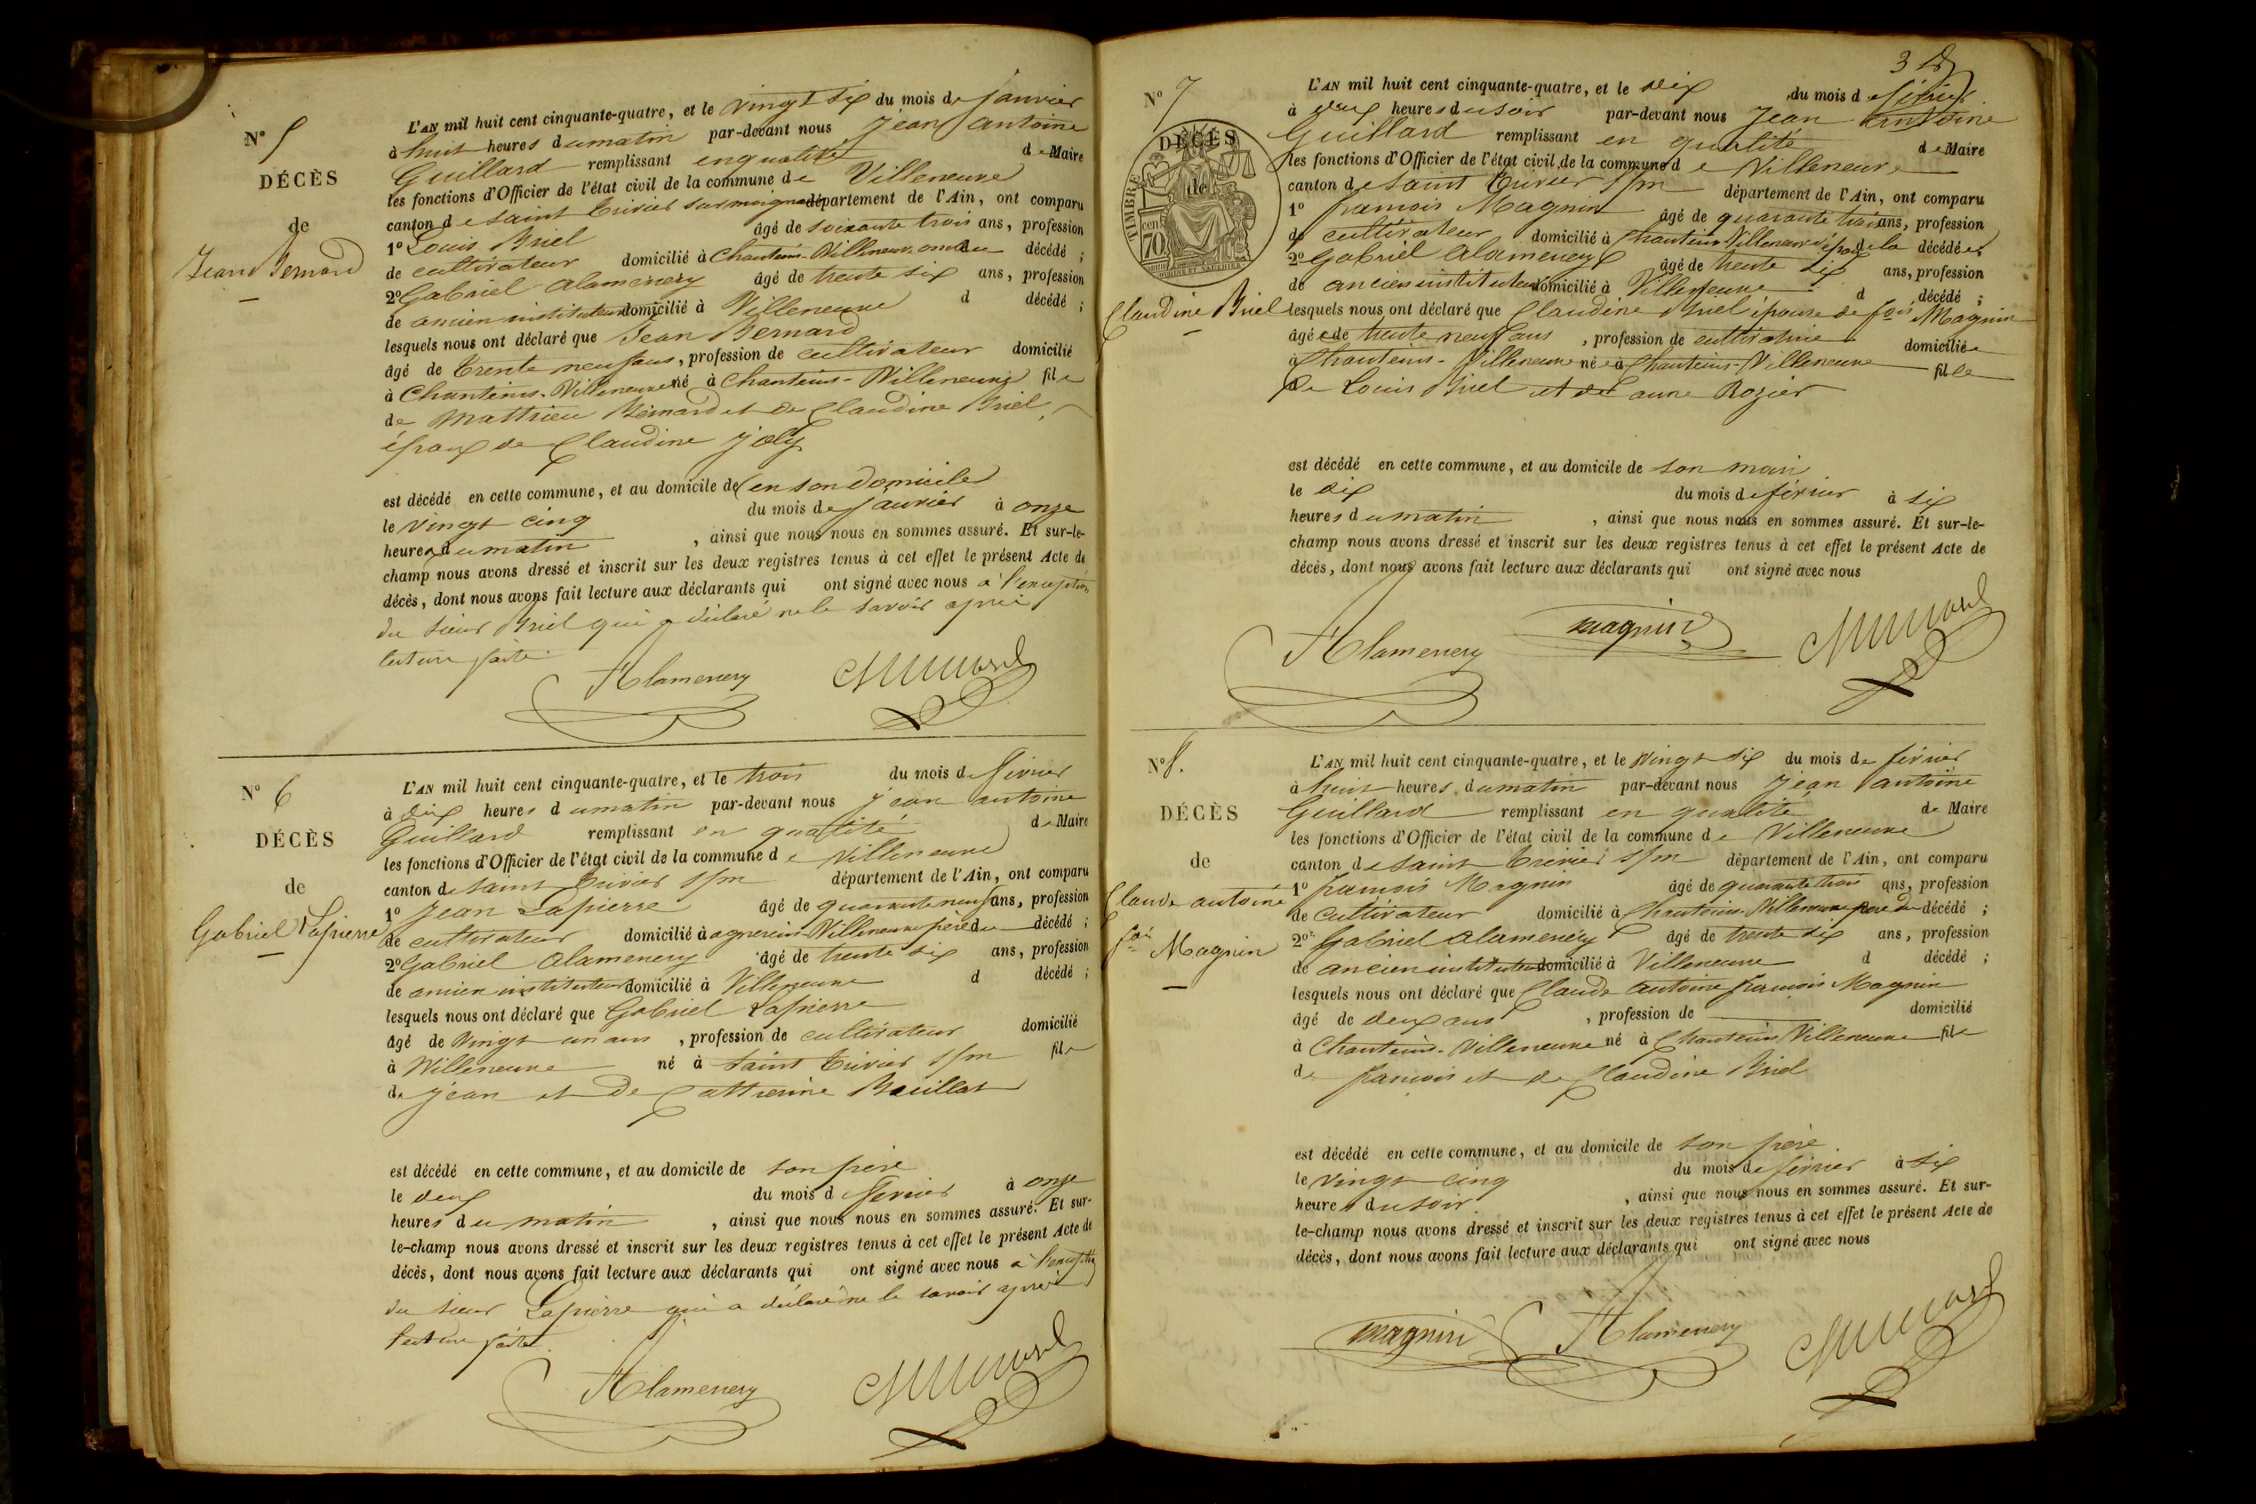 N° 5
DÉCÈS
de
Jean Bernard
L'AN mil huit cent cinquante-quatre, et le vingt six du mois de janvier
à huit heures du matin par-devant nous Jean antoine
Guillard remplissant en qualité de Maire
les fonctions d'Officier de l'état civil de la commune de Villeneuve
canton de saint trivier sur moignans département de l'Ain, ont comparu
1° Louis Briel âgé de soixante trois ans, profession
de cultivateur domicilié à Chanteins-Villeneuve du décédé ;
2° Gabriel alamenery âgé de trente six ans, profession
de ancien instituteur domicilié à Villeneuve d décédé ;
lesquels nous ont déclaré que Jean Bernard
âgé de trente neuf ans, profession de cultivateur domicilié
à Chanteins-Villeneuve né à Chanteins-Villeneuve fils
de Matthieu Bernard et de Claudine Briel,
époux de Claudine Joly
est décédé en cette commune, et au domicile de en son domicile
le vingt cinq du mois de janvier à onze
heures du matin, ainsi que nous nous en sommes assuré. Et sur-le-
champ nous avons dressé et inscrit sur les deux registres tenus à cet effet le présent Acte de
décès, dont nous avons fait lecture aux déclarants qui ont signé avec nous à l'exception
du sieur Briel qui a déclaré ne le savoir après
lecture faite
Alamenery
N° 6
DÉCÈS
de
Gabriel Lapierre
L'AN mil huit cent cinquante-quatre, et le trois du mois de février
à dix heures du matin par-devant nous jean antoine
Guillard remplissant en qualité de Maire
les fonctions d'Officier de l'état civil de la commune de Villeneuve
canton de saint trivier s/m département de l'Ain, ont comparu
1° Jean Lapierre âgé de quarante neuf ans, profession
de cultivateur domicilié à agnereins-Villeneuve père du décédé ;
2° Gabriel alamenery âgé de trente six ans, profession
de ancien instituteur domicilié à Villeneuve d décédé ;
lesquels nous ont déclaré que Gabriel Lapierre
âgé de vingt un ans, profession de cultivateur domicilié
à Villeneuve né à saint trivier s/m fils
de jean et de Catherine Bouillat
est décédé en cette commune, et au domicile de son père
le deux du mois de fevrier à onze
heures du matin, ainsi que nous nous en sommes assuré. Et sur-
le-champ nous avons dressé et inscrit sur les deux registres tenus à cet effet le présent Acte de
décès, dont nous avons fait lecture aux déclarants qui ont signé avec nous à l'exception
du sieur Lapierre qui a déclaré ne le savoir après
lecture faite.
Alamenery
3
N° 7
DÉCÈS
de
TIMBRE
70
Claudine Briel
L'AN mil huit cent cinquante-quatre, et le dix du mois de février
à deux heures du soir par-devant nous Jean antoine
Guillard remplissant en qualité de Maire
les fonctions d'Officier de l'état civil de la commune de Villeneuve
canton de saint trivier s/m département de l'Ain, ont comparu
1° francois Magnin âgé de quarante trois ans, profession
de cultivateur domicilié à Chanteins-Villeneuve époux de la décédée,
2° Gabriel alamenery âgé de trente six ans, profession
de ancien instituteur domicilié à Villeneuve d décédé ;
lesquels nous ont déclaré que Claudine Briel épouse de fois Magnin
âgée de trente neuf ans, profession de cultivatrice domiciliée
à Chanteins-Villeneuve née à Chanteins-Villeneuve fille
de Louis Briel et de anne Rozier
est décédé en cette commune, et au domicile de son mari
le dix du mois de février à six
heures du matin, ainsi que nous nous en sommes assuré. Et sur-le-
champ nous avons dressé et inscrit sur les deux registres tenus à cet effet le présent Acte de
décès, dont nous avons fait lecture aux déclarants qui ont signé avec nous
Alamenery magnin
N° 8.
DÉCÈS
de
Claude antoine
fois Magnin
L'AN mil huit cent cinquante-quatre, et le vingt six du mois de février
à huit heures du matin par-devant nous jean antoine
Guillard remplissant en qualité de Maire
les fonctions d'Officier de l'état civil de la commune de Villeneuve
canton de saint trivier s/m département de l'Ain, ont comparu
1° francois Magnin âgé de quarante trois ans, profession
de cultivateur domicilié à Chanteins-Villeneuve père du décédé ;
2° Gabriel alamenery âgé de trente six ans, profession
de ancien instituteur domicilié à Villeneuve d décédé ;
lesquels nous ont déclaré que Claude antoine francois Magnin
âgé de deux ans, profession de domicilié
à Chanteins-Villeneuve né à Chanteins Villeneuve fils
de francois et de Claudine Briel
est décédé en cette commune, et au domicile de son père
le vingt cinq du mois de février à six
heures du soir, ainsi que nous nous en sommes assuré. Et sur-
le-champ nous avons dressé et inscrit sur les deux registres tenus à cet effet le présent Acte de
décès, dont nous avons fait lecture aux déclarants qui ont signé avec nous
magnin Alamenery